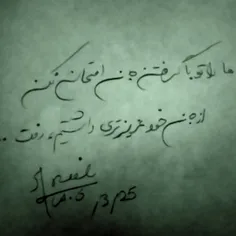 ما را تو با گرفتن جان امتحان نکن
از جان خود عزیزتری داشتیم، رفت ..